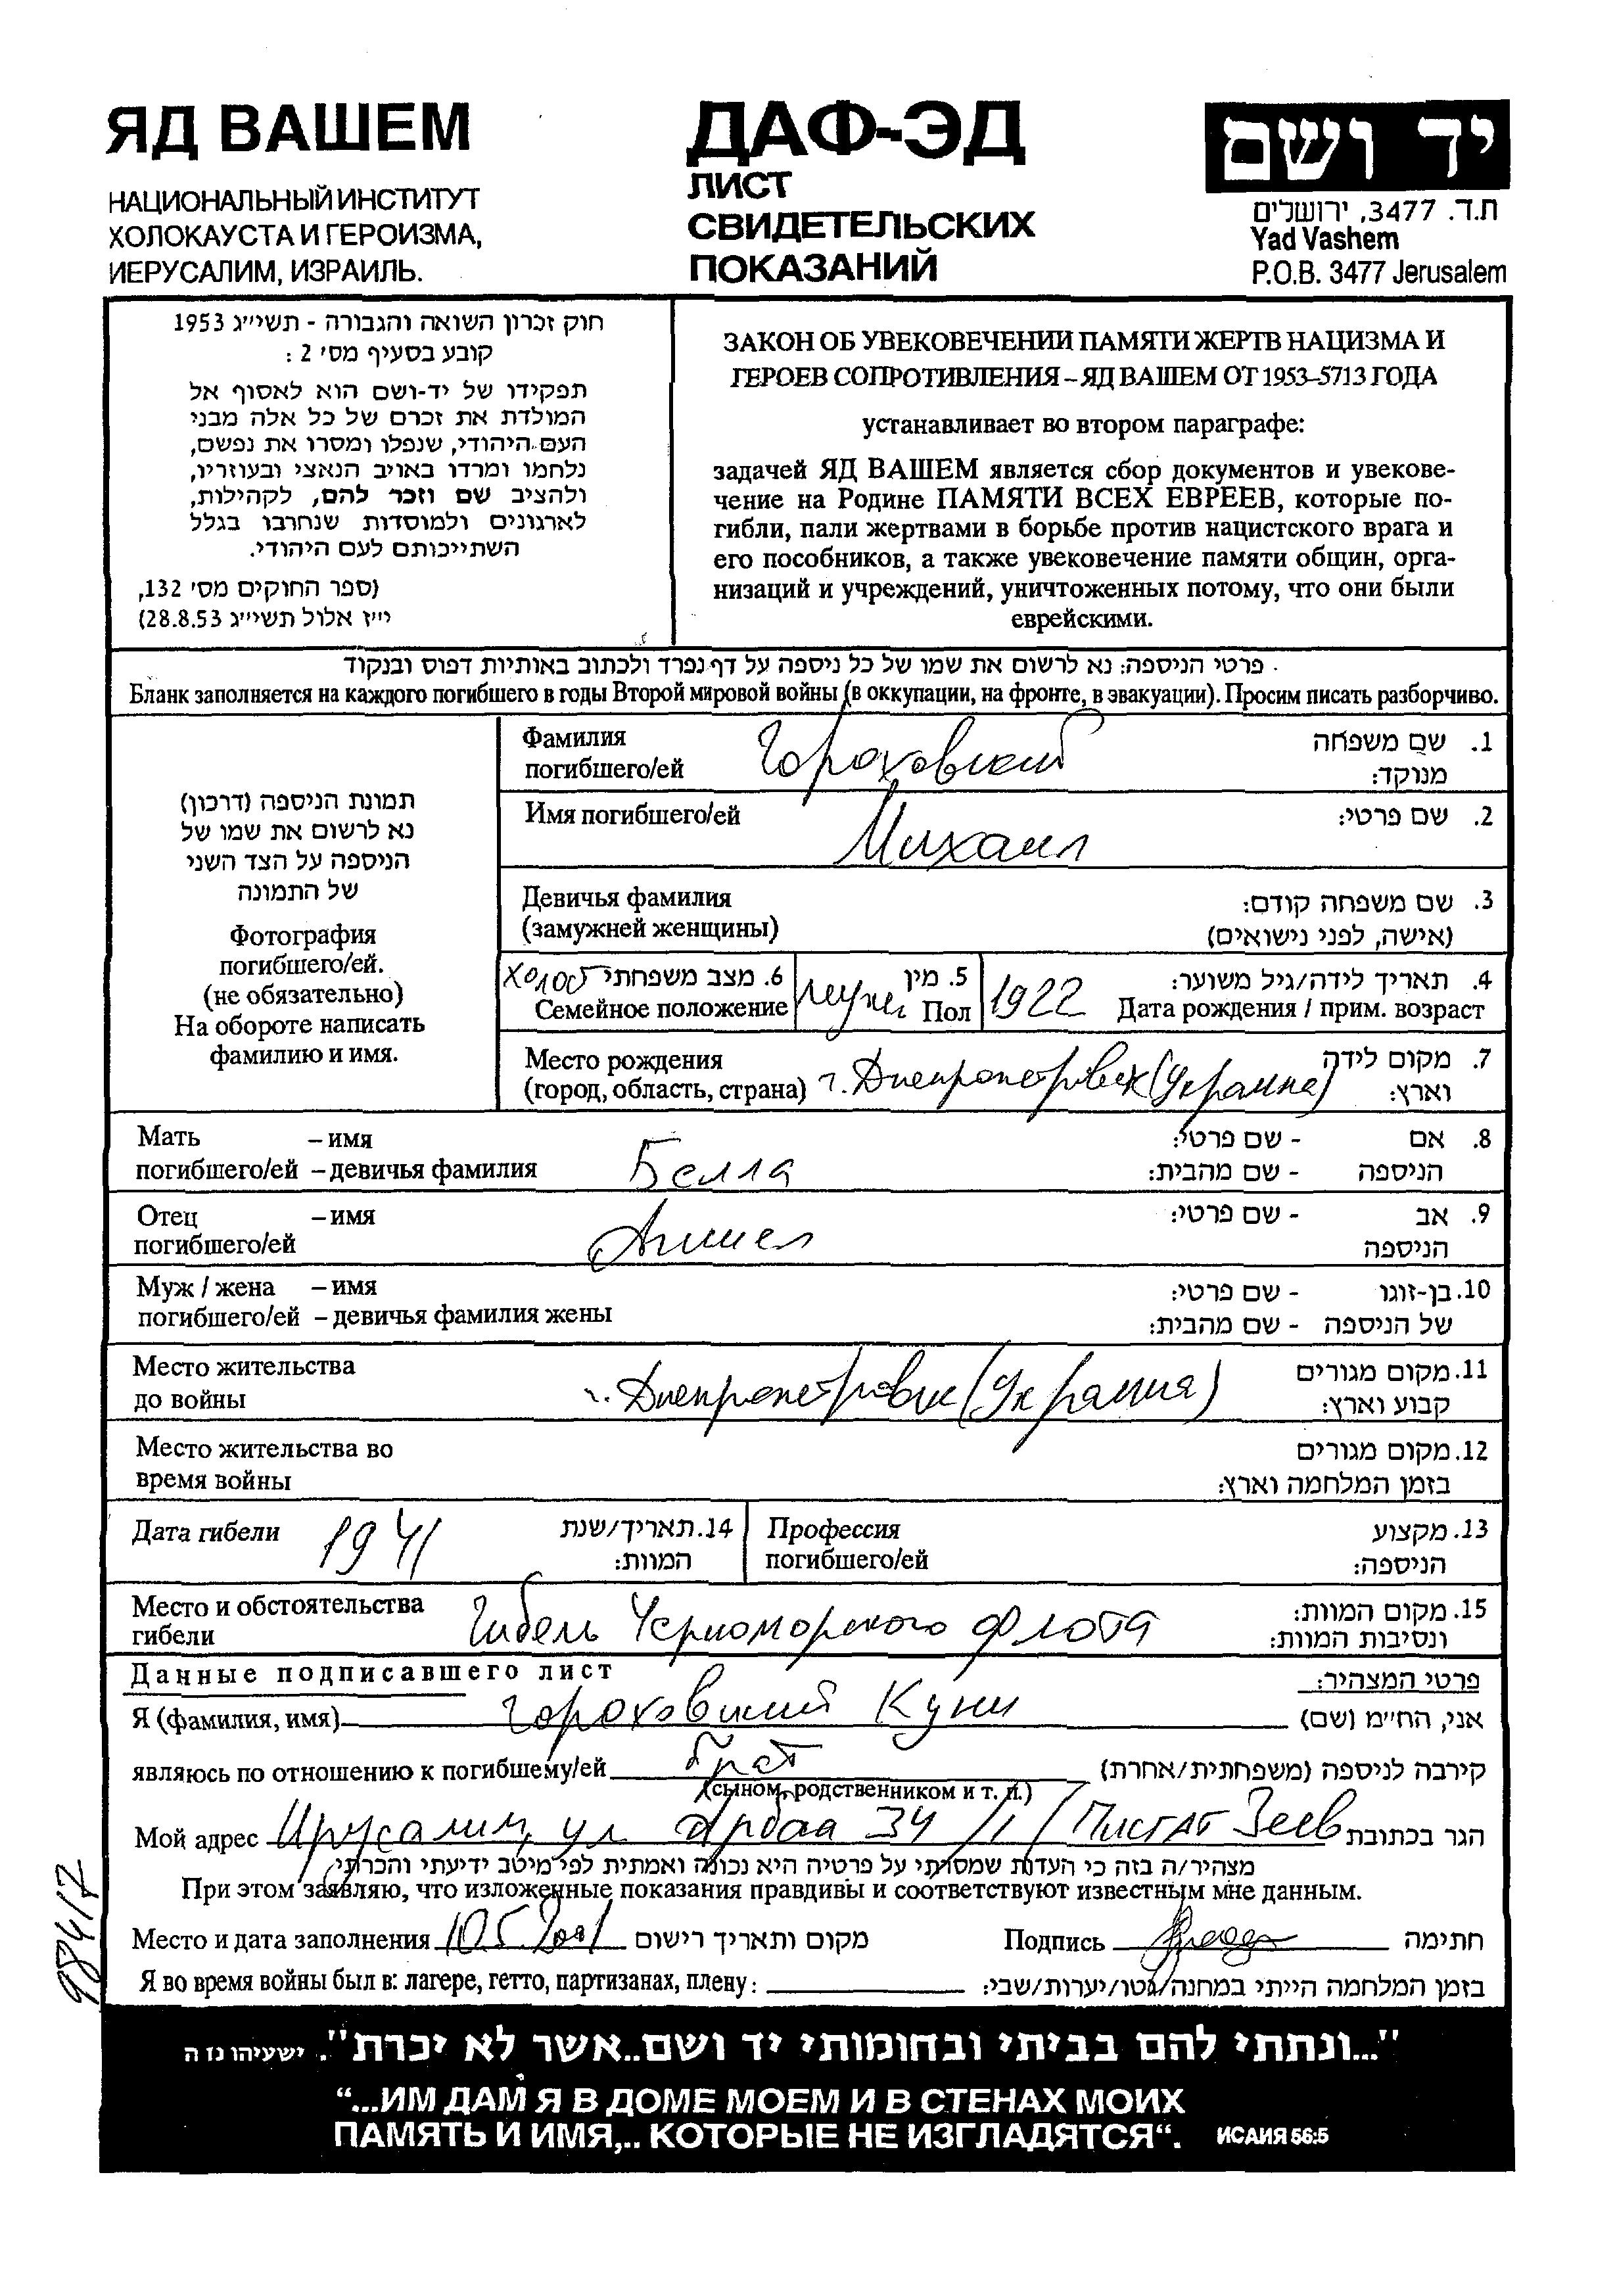 ЯД ВАШЕМ
НАЦИОНАЛЬНЫЙ ИНСТИТУТ
ХОЛОКАУСТА И ГЕРОИЗМА,
ИЕРУСАЛИМ, ИЗРАИЛЬ.
ДАФ-ЭД
ЛИСТ
СВИДЕТЕЛЬСКИХ
ПОКАЗАНИЙ
יד ושם
ת.ד. 3477, ירושלים
Yad Vashem
P.O.B. 3477 Jerusalem
חוק זכרון השואה והגבורה - תשי״ג 1953
קובע בסעיף מס׳ 2 :
תפקידו של יד-ושם הוא לאסוף אל
המולדת את זכרם של כל אלה מבני
העם היהודי, שנפלו ומסרו את נפשם,
נלחמו ומרדו באויב הנאצי ובעוזריו,
ולהציב שם וזכר להם, לקהילות,
לארגונים ולמוסדות שנחרבו בגלל
השתייכותם לעם היהודי.
(ספר החוקים מס׳ 132,
י״ז אלול תשי״ג 28.8.53)
ЗАКОН ОБ УВЕКОВЕЧЕНИИ ПАМЯТИ ЖЕРТВ НАЦИЗМА И
ГЕРОЕВ СОПРОТИВЛЕНИЯ – ЯД ВАШЕМ ОТ 1953–5713 ГОДА
устанавливает во втором параграфе:
задачей ЯД ВАШЕМ является сбор документов и увекове-
чение на Родине ПАМЯТИ ВСЕХ ЕВРЕЕВ, которые по-
гибли, пали жертвами в борьбе против нацистского врага и
его пособников, а также увековечение памяти общин, орга-
низаций и учреждений, уничтоженных потому, что они были
еврейскими.
פרטי הניספה: נא לרשום את שמו של כל ניספה על דף נפרד ולכתוב באותיות דפוס ובנקוד
Бланк заполняется на каждого погибшего в годы Второй мировой войны (в оккупации, на фронте, в эвакуации). Просим писать разборчиво.
תמונת הניספה (דרכון)
נא לרשום את שמו של
הניספה על הצד השני
של התמונה
Фотография
погибшего/ей.
(не обязательно)
На обороте написать
фамилию и имя.
Фамилия
погибшего/ей Гороховский
1. שם משפחה
מנוקד:
Имя погибшего/ей Михаил 2. שם פרטי:
Девичья фамилия
(замужней женщины)
3. שם משפחה קודם:
(אישה, לפני נישואים)
холост 6. מצב משפחתי
Семейное положение
муж. 5. מין
Пол
1922 4. תאריך לידה/גיל משוער:
Дата рождения / прим. возраст
Место рождения
(город, область, страна) г. Днепропетровск (Украина)
7. מקום לידה
וארץ:
Мать – имя
погибшего/ей – девичья фамилия Белла
8. אם - שם פרטי:
הניספה - שם מהבית:
Отец – имя
погибшего/ей Аншел
9. אב - שם פרטי:
הניספה
Муж / жена – имя
погибшего/ей – девичья фамилия жены
10. בן-זוגו - שם פרטי:
של הניספה - שם מהבית:
Место жительства
до войны г. Днепропетровск (Украина)
11. מקום מגורים
קבוע וארץ:
Место жительства во
время войны
12. מקום מגורים
בזמן המלחמה וארץ:
Дата гибели 1941 14. תאריך/שנת
המוות:
Профессия
погибшего/ей
13. מקצוע
הניספה:
Место и обстоятельства
гибели Гибель Черноморского флота
15. מקום המוות:
ונסיבות המוות:
Данные подписавшего лист פרטי המצהיר:
Я (фамилия, имя) Гороховский Куни אני, הח״מ (שם)
являюсь по отношению к погибшему/ей брат קירבה לניספה (משפחתית/אחרת)
(сыном, родственником и т. п.)
Мой адрес Ирусалим, ул Арбаа 34/1 /Писгат Зеев הגר בכתובת
מצהיר/ה בזה כי העדות שמסרתי על פרטיה היא נכונה ואמתית לפי מיטב ידיעתי והכרתי
При этом заявляю, что изложенные показания правдивы и соответствуют известным мне данным.
Место и дата заполнения 10.5.2001 מקום ותאריך רישום Подпись חתימה
Я во время войны был в: лагере, гетто, партизанах, плену: בזמן המלחמה הייתי במחנה/גטו/יערות/שבי:
98417
"...ונתתי להם בביתי ובחומותי יד ושם..אשר לא יכרת". ישעיהו נז ה
“...ИМ ДАМ Я В ДОМЕ МОЕМ И В СТЕНАХ МОИХ
ПАМЯТЬ И ИМЯ,.. КОТОРЫЕ НЕ ИЗГЛАДЯТСЯ“. ИСАИЯ 56:5